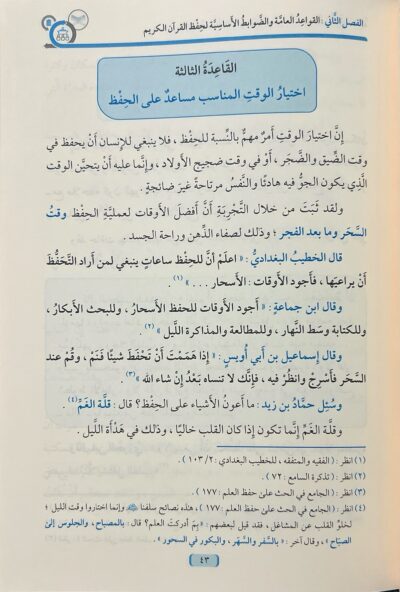 الفصل الثَّاني : القواعِدُ العامَّة والضَّوابطُ الأَساسِيَّة لحِفْظ القرآن الكريم
القَاعِدَةُ الثالثة
اختيارُ الوقتِ المناسب مساعدٌ على الحِفْظ
إنَّ اختيارَ الوقتِ أمرٌ مهمٌّ بالنَّسبة للحِفْظ ، فلا ينبغي للإنسان أَنْ يحفظ في
وقت الضِّيق والضَّجَر ، أَوْ في وقت ضجيج الأَولاد ، وإنَّما عليه أَنْ يتحيَّن الوقت
الَّذي يكون الجوُّ فيه هادئًا والنَّفْسُ مرتاحةً غيرَ ضائجةٍ .
ولقد ثَبَتَ من خلال التَّجْرِبَةِ أَنَّ أفضلَ الأَوقات لعمليَّةِ الحِفْظِ وقتُ
السَّحَر وما بعد الفجر ؛ وذلك لصفاء الذِّهن وراحة الجسد .
قال الخطيبُ البغداديُّ : « اعلَمْ أنَّ للحِفْظِ ساعاتٍ ينبغي لمن أراد التَّحَفُّظَ
أَنْ يراعيَها ، فأجود الأَوقات : الأَسحار . . . . » (١) .
وقال ابن جماعة : « أَجود الأوقات للحفظ الأَسحارُ ، وللبحث الأَبكارُ ،
وللكتابة وسَط النَّهار ، وللمطالعة والمذاكرة اللَّيل » (٢)
وقال إسماعيل بن أبي أُويسٍ : « إذا هَمَمْتَ أَنْ تَحْفَظَ شيئًا فَنَمْ ، وقُمْ عند
السَّحَر فأَسْرِجْ وانظُرْ فيه ، فإنَّك لا تنساه بَعْدُ إنْ شاء الله » (٣) .
وسُئِل حمَّادُ بن زيد : ما أَعونُ الأشياء على الحِفْظ؟ قال : قلَّة الغَمِّ (٤) .
وقلَّة الغَمِّ إنَّما تكون إذا كان القلب خاليًا ، وذلك في هَدْأَة اللَّيل .
(١) انظر : الفقيه والمتفقه ، للخطيب البغدادي : ٢/ ١٠٣ .
(٢) انظر : تذكرة السامع : ٧٢ .
(٣) انظر : الجامع في الحث على حفظ العلم : ١٧٧ .
(٤) انظر : الجامع في الحث على حفظ العلم : ١٧٧ ، هذه نصائح سلفنا وإنما اختاروا وقت الليل ؛
لخلوِّ القلب عن المشاغل ، فقد قيل لبعضهم : « بِمَ أدركتَ العلم؟ قال : بالمصباح ، والجلوسِ إلى
الصباح » ، وقال آخر : « بالسَّفَر والسَّهَر ، والبكور في السحور » .
٤٣